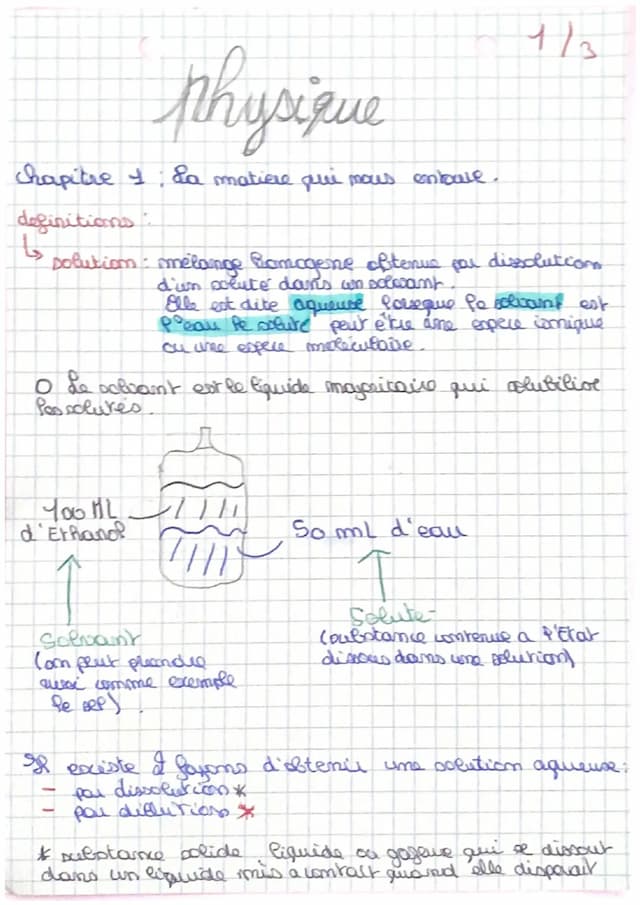 1/3
physique
Chapitre 1 : La matiere qui nous entoure.
definitions :
↳ solution : mélange homogene obtenue par dissolution
d'un soluté dans un solvant.
Elle est dite aqueuse lorsque le solvant est
l'eau le soluté peut être une espece ionique
ou une espece moleculaire.
O Le solvant est le liquide majoritaire qui solubilise
les solutés.
100 ML
d'Ethanol
50 mL d'eau
Solvant
(on peut prendre
aussi comme exemple
le sel).
Soluté
(substance contenue a l'Etat
dissous dans une solution)
Il existe 2 façons d'obtenir une solution aqueuse :
- par dissolution *
- par dillutions *
* substance solide liquide ou gazeux qui se dissout
dans un liquide mis a contact quand elle disparait